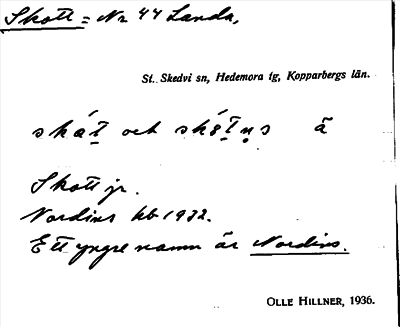 Skott = Nr 44 Landa,
St. Skedvi sn, Hedemora tg, Kopparbergs län.
skát och skótns ä
Skott jr.
Nordins kb 1932.
Ett yngre namn är Nordins.
OLLE HILLNER, 1936.